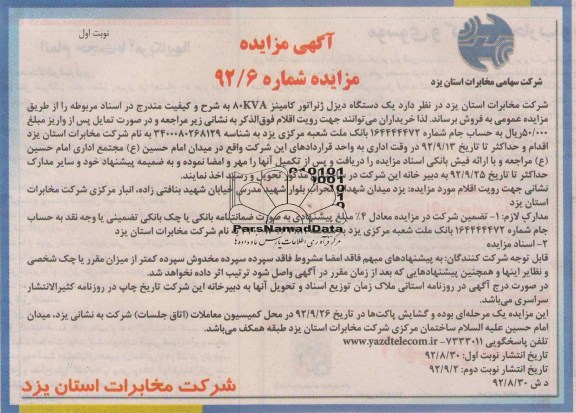 نوبت اول
آگهی مزایده
مزایده شماره ۹۲/۶
شرکت سهامی مخابرات استان یزد
شرکت مخابرات استان یزد در نظر دارد یک دستگاه دیزل ژنراتور کامینز ۸۰KVA به شرح و کیفیت مندرج در اسناد مربوطه را از طریق
مزایده عمومی به فروش برساند. لذا خریداران می‌توانند جهت رویت اقلام فوق‌الذکر به نشانی زیر مراجعه و در صورت تمایل پس از واریز مبلغ
۵۰/۰۰۰ریال به حساب جام شماره ۱۶۴۴۴۴۴۷۲ بانک ملت شعبه مرکزی یزد به شناسه ۳۴۰۰۰۸۰۲۶۸۱۲۹ به نام شرکت مخابرات استان یزد
اقدام و حداکثر تا تاریخ ۹۲/۹/۱۳ در وقت اداری به واحد قراردادهای این شرکت واقع در میدان امام حسین (ع) مجتمع اداری امام حسین
(ع) مراجعه و با ارائه فیش بانکی اسناد مزایده را دریافت و پس از تکمیل آنها را مهر و امضا نموده و به ضمیمه پیشنهاد خود و سایر مدارک
حداکثر تا تاریخ ۹۲/۹/۲۵ به دبیر خانه این شرکت در مذکور تحویل و رسید اخذ نمایند.
نشانی جهت رویت اقلام مورد مزایده: یزد میدان شهدای محراب بلوار شهید مدرس خیابان شهید بنافتی زاده، انبار مرکزی شرکت مخابرات
استان یزد
مدارک لازم: ۱- تضمین شرکت در مزایده معادل ۴٪ مبلغ پیشنهادی به صورت ضمانتنامه بانکی یا چک بانکی تضمینی یا وجه نقد به حساب
جام شماره ۱۶۴۴۴۴۴۷۲ بانک ملت شعبه مرکزی یزد به نام شرکت مخابرات استان یزد
۲- اسناد مزایده
قابل توجه شرکت کنندگان: به پیشنهادهای مبهم فاقد امضا مشروط فاقد سپرده سپرده مخدوش سپرده کمتر از میزان مقرر یا چک شخصی
و نظایر اینها و همچنین پیشنهادهایی که بعد از زمان مقرر در آگهی واصل شود ترتیب اثر داده نخواهد شد.
در صورت درج آگهی در روزنامه استانی ملاک زمان توزیع اسناد و تحویل آنها به دبیرخانه این شرکت تاریخ چاپ در روزنامه کثیرالانتشار
سراسری می‌باشد.
این مزایده یک مرحله‌ای بوده و گشایش پاکت‌ها در تاریخ ۹۲/۹/۲۶ در محل کمیسیون معاملات (اتاق جلسات) شرکت به نشانی یزد، میدان
امام حسین علیه السلام ساختمان مرکزی شرکت مخابرات استان یزد طبقه همکف می‌باشد.
تلفن پاسخگویی ۷۲۳۳۰۱۱- www.yazdtelecom.ir
تاریخ انتشار نوبت اول: ۹۲/۸/۳۰
تاریخ انتشار نوبت دوم: ۹۲/۹/۲
د ش ۹۲/۸/۳۰
شرکت مخابرات استان یزد
ParsNamadData